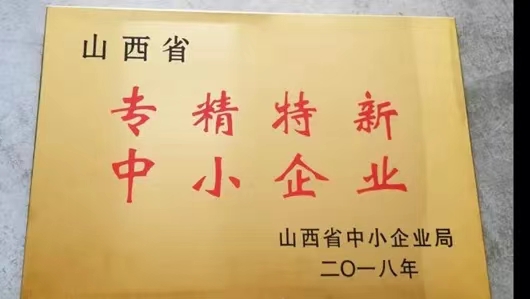 山西省
专精特新
中小企业
山西省中小企业局
二〇一八年